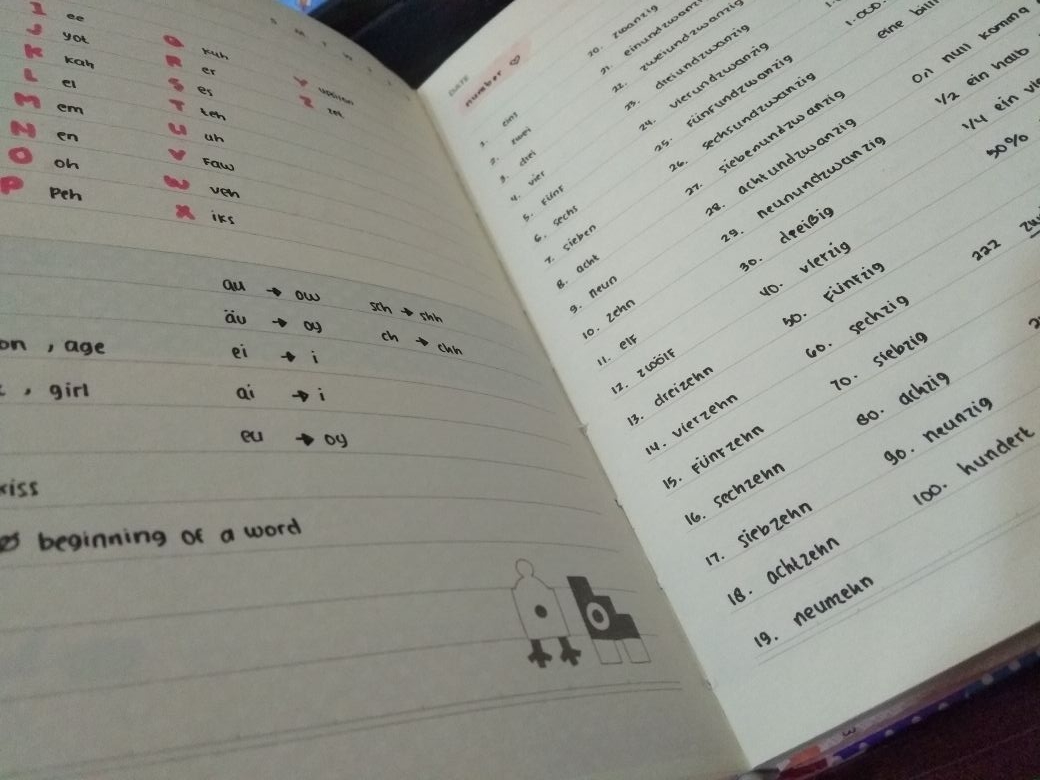 I ee
J yot
K kah
L el
M em
N en
O oh
P Peh
Q kuh
R er
S es
T teh
U uh
V Faw
W veh
X iks
Y
Z
au → ow
äu → oy
ei → i
ai → i
eu → oy
sch → shh
ch → chh
on, age
, girl
kiss
beginning of a word
DATE
number
1. eins
2. zwei
3. drei
4. vier
5. fünf
6. sechs
7. sieben
8. acht
9. neun
10. zehn
11. elf
12. zwölf
13. dreizehn
14. vierzehn
15. fünfzehn
16. sechzehn
17. siebzehn
18. achtzehn
19. neunzehn
20. zwanzig
21. einundzwanzig
22. zweiundzwanzig
23. dreiundzwanzig
24. vierundzwanzig
25. fünfundzwanzig
26. sechsundzwanzig
27. siebenundzwanzig
28. achtundzwanzig
29. neunundzwanzig
30. dreißig
40. vierzig
50. fünfzig
60. sechzig
70. siebzig
80. achzig
90. neunzig
100. hundert
1.000.
eine billi
0,1 null komma
1/2 ein halb
1/4 ein vie
50%
222 zw